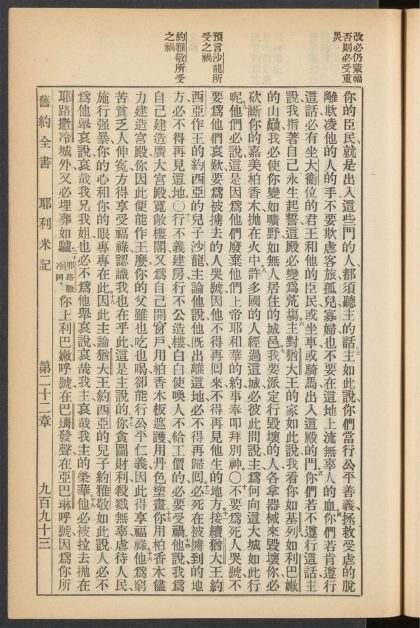 改必仍蒙福
否則必受重
災
預言沙龍所
受之禍
約雅敬所受
之禍
你的臣民、就是出入這些門的人、都須聽主的話主如此說、你們當行公平善義、拯救受虐的脫
離欺凌他的人的手不要欺虐客旅孤兒寡婦也不要在這地上流無辜人的血你們若肯遵行
這話必有坐大衞位的君王和他的臣民或坐車或騎馬出入這殿的門你們若不遵行這話主
說我指著自己永生起誓這殿必變為荒塲主對猶大王的家如此說我看你如基列如利巴嫩
的山巔我必使你變如曠野如無人居住的城邑我要派定行毀壞的人各拿器械來毀壞你必
砍斷你的嘉美柏香木拋在火中許多國的人經過這城必彼此問說主為何向這大城如此行
呢他們必說這是因他們廢棄他們上帝耶和華的約事奉叩拜別神○不要為死人哭號不
要為他們哀歎要為被擄去的人哭號因他不得再回來不得再見他生的地方接續猶大王約
西亞作王的約西亞的兒子沙龍主論他說他既出離這地必不得再歸回必死在被擄到的地
方必不得再見這地○行不義建房行不公造樓白白使喚人不給工價的必要受禍他說我為
自己建造廣大宮殿寬敞樓閣又為自己開窗戶用柏香木板遮護用丹色塗畫你用柏香木儘
力建造宮殿你因此便能作王麼你的父雖也吃也喝卻能行公平仁義因此得享福祿他為窮
苦貧乏人伸冤方得享受福祿認識我也在乎此這是主說的你貪圖財利殺戮無辜虐待人民
施行強暴你的心和你的眼專專在此因此主論猶大王約西亞的兒子約雅敬如此說人必不
為他舉哀說哀哉我兄我姐也必不為他舉哀說哀哉我主哀哉我主的榮華他必被拉去拋在
耶路撒冷城外又必埋葬如驢耶路撒冷阿你上利巴嫩呼號在巴珊發聲在亞巴琳呼號因為你所
舊約全書 耶利米記 第二十二章 九百九十三